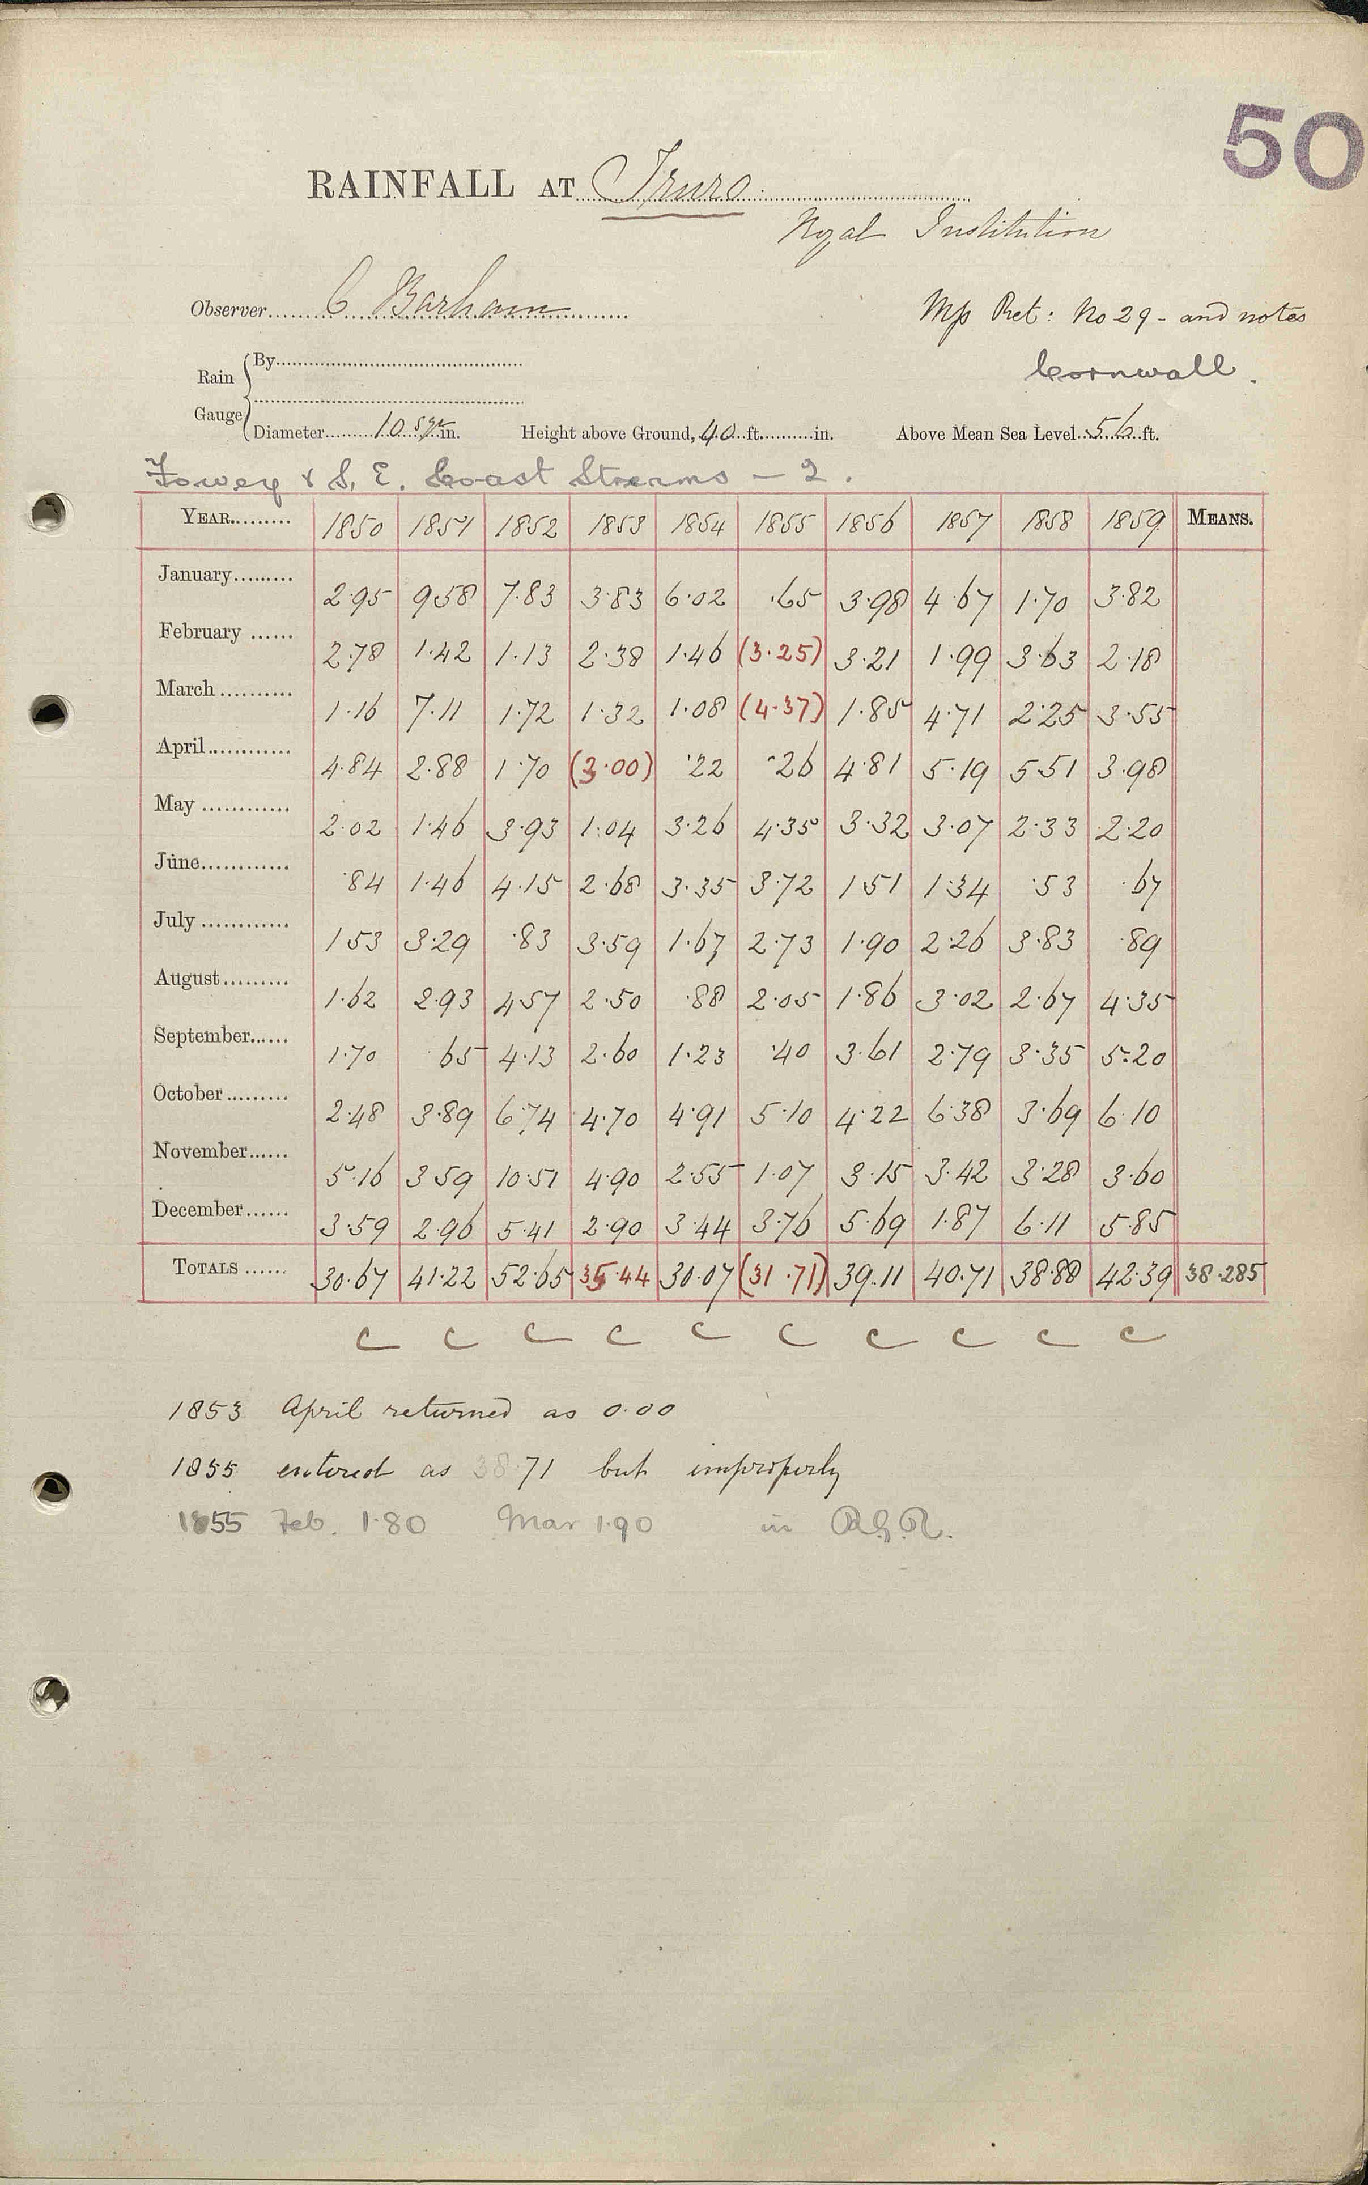 50
RAINFALL AT Truro.
Royal Institution
Observer C Barham
Mp Ret: No 29 - and notes
Cornwall.
Rain Gauge By
Diameter 10 sqr in. Height above Ground, 40 ft. in. Above Mean Sea Level 56 ft.
Fowey & S. E. Coast Streams - 2.
YEAR 1850 1851 1852 1853 1854 1855 1856 1857 1858 1859 MEANS.
January 2.95 9.58 7.83 3.83 6.02 .65 3.98 4.67 1.70 3.82
February 2.78 1.42 1.13 2.38 1.46 (3.25) 3.21 1.99 3.63 2.18
March 1.16 7.11 1.72 1.32 1.08 (4.37) 1.85 4.71 2.25 3.55
April 4.84 2.88 1.70 (3.00) .22 .26 4.81 5.19 5.51 3.98
May 2.02 1.46 3.93 1.04 3.26 4.35 3.32 3.07 2.33 2.20
June .84 1.46 4.15 2.68 3.35 3.72 1.51 1.34 .53 .67
July 1.53 3.29 .83 3.59 1.67 2.73 1.90 2.26 3.83 .89
August 1.62 2.93 4.57 2.50 .88 2.05 1.86 3.02 2.67 4.35
September 1.70 .65 4.13 2.60 1.23 .40 3.61 2.79 3.35 5.20
October 2.48 3.89 6.74 4.70 4.91 5.10 4.22 6.38 3.69 6.10
November 5.16 3.59 10.51 4.90 2.55 1.07 3.15 3.42 3.28 3.60
December 3.59 2.96 5.41 2.90 3.44 3.76 5.69 1.87 6.11 5.85
TOTALS 30.67 41.22 52.65 35.44 30.07 (31.71) 39.11 40.71 38.88 42.39 38.285
C C C C C C C C C C
1853 April returned as 0.00
1855 entered as 38.71 but improperly
1855 Feb. 1.80 Mar 1.90 in R.G.R.